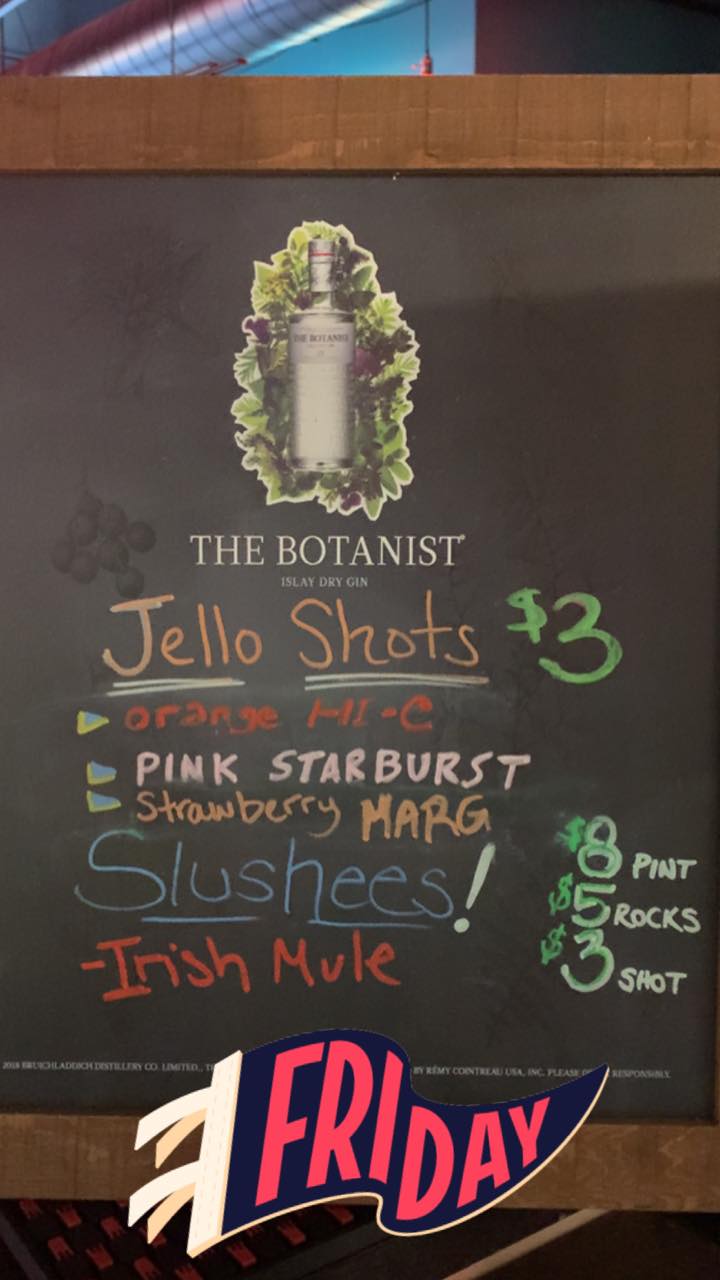 THE BOTANIST
THE BOTANIST®
ISLAY DRY GIN
Jello Shots $3
orange HI-C
PINK STARBURST
Strawberry MARG
Slushees!
$8 PINT
$5 ROCKS
$3 SHOT
-Irish Mule
2018 BRUICHLADDICH DISTILLERY CO. LIMITED., BY RÉMY COINTREAU USA, INC. PLEASE RESPONSIBLY.
FRIDAY